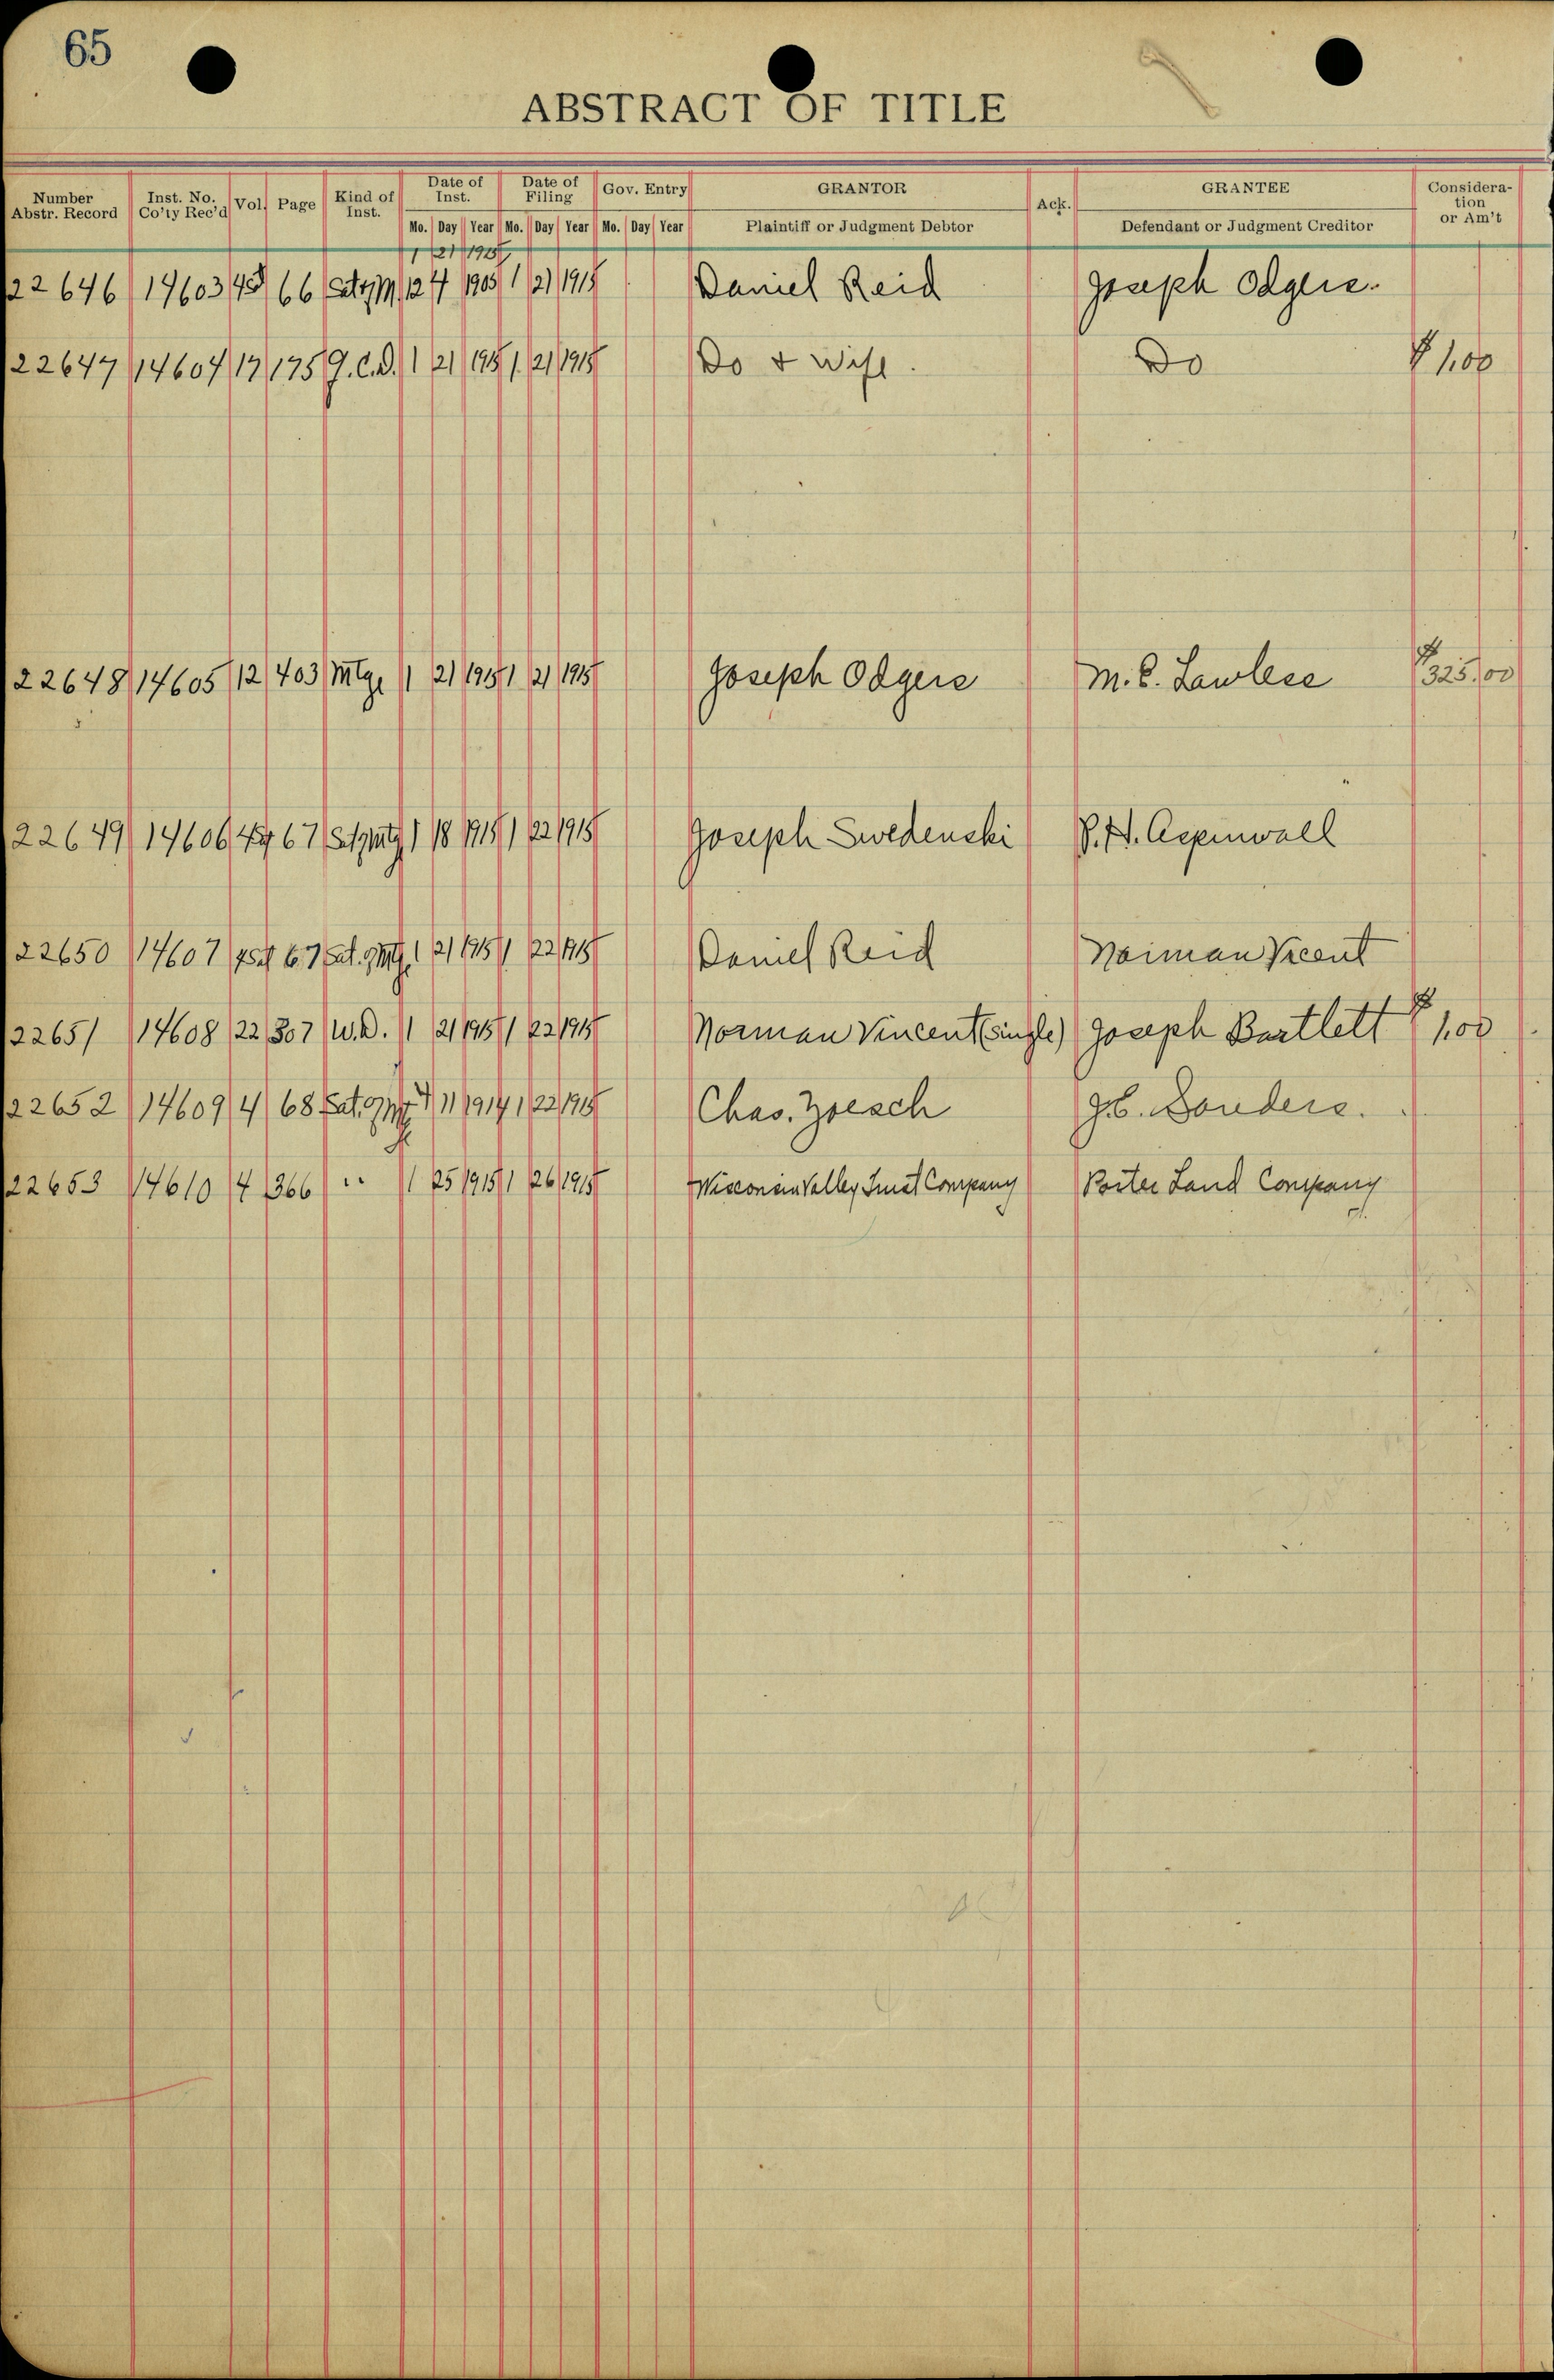 65
ABSTRACT OF TITLE
Number Abstr. Record Inst. No. Co'ty Rec'd Vol. Page Kind of Inst. Date of Inst. Date of Filing Gov. Entry GRANTOR Ack. GRANTEE Consideration or Am't
Mo. Day Year Mo. Day Year Mo. Day Year Plaintiff or Judgment Debtor Defendant or Judgment Creditor
1 21 1915
22646 14603 66 12 4 1905 1 21 1915 Daniel Reid Joseph Odgers
22647 14604 17 175 Q.C.D. 1 21 1915 1 21 1915 Do & Wife. Do $ 1.00
22648 14605 12 403 Mtg. 1 21 1915 1 21 1915 Joseph Odgers M. C. Lawless $325.00
22649 14606 67 1 18 1915 1 22 1915 Joseph Swedenski P. H. Aspinwall
22650 14607 67 Sat. 1 21 1915 1 22 1915 Daniel Reid Norman Vicent
22651 14608 22 307 W.D. 1 21 1915 1 22 1915 Norman Vincent (single) Joseph Bartlett $ 1.00
22652 14609 4 68 Sat. 11 1914 1 22 1915 Chas. Zoesch Sanders.
22653 14610 4 366 " 1 25 1915 1 26 1915 Wisconsin Valley Trust Company Porter Land Company